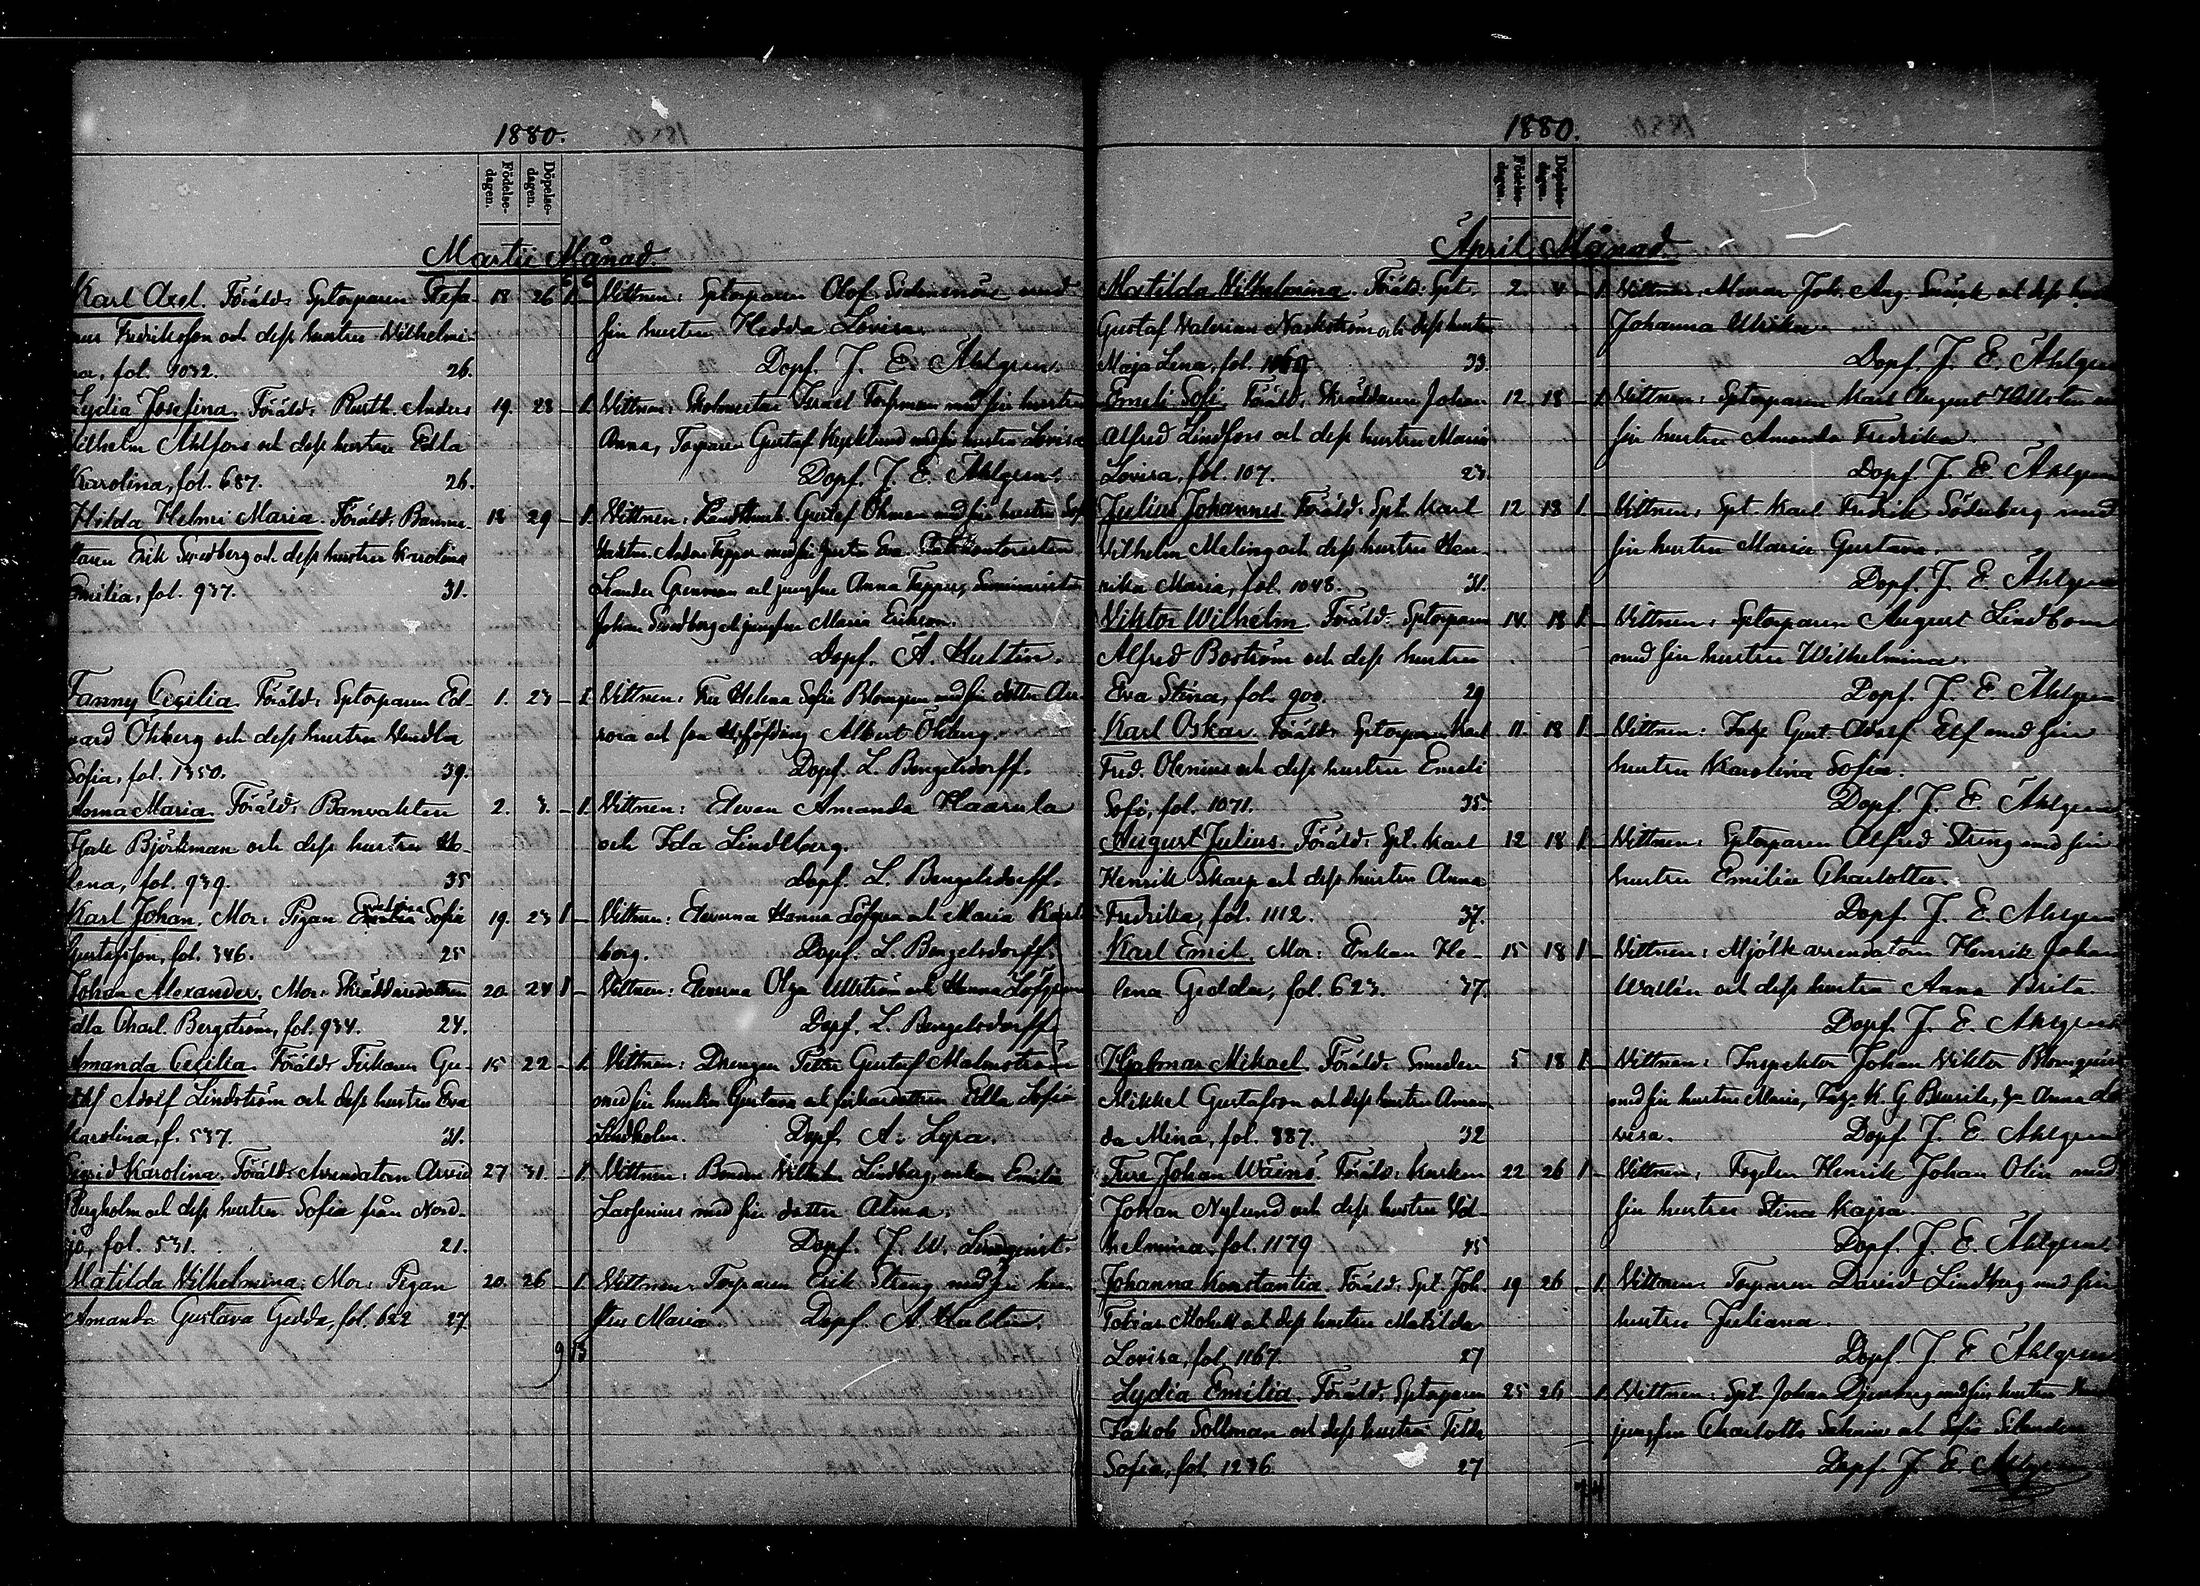 1880.
Födelse-dagen.
Döpelse-dagen.
Martii Månad.
Karl Axel. Föräld: Sptorparen Stefa- 18 26 1 Vittnen: Sptorparen Olof Södersnöre med
nus Fredriksson och dess hustru Vilhelmi- sin hustru Hedda Lovisa.
na, fol. 1032. 26. Döpf. J. E. Ahlgren.
Lydia Josefina. Föräld: Rusth. Anders 19. 28 1. Vittnen: Skolmästar Israel Forsman med sin hustru
Wilhelm Ahlfors och dess hustru Edla Anna, Torparen Gustaf Kycklund med sin hustru Lovisa
Karolina, fol. 687. 26. Döpf. J. E. Ahlgren.
Hilda Helmi Maria. Föräld: Banmä- 18 29 1 Vittnen: Gustaf Öhman med sin hustru
staren Erik Svedberg och dess hustru Karolina Vakten Anders Tepper med sin hustru Eva.
Emilia, fol. 937. 31. Grenman och jungfru Anna Tepper, Seminaristen
Johan Svedberg och jungfru Maria Erikson.
Döpf. A. Hultin.
Fanny Cecilia. Föräld: Sptorparen Ed- 1. 23 1 Vittnen: Fru Helena Sofia Blomgren med sin dotter Au-
vard Öhberg och dess hustru Vendla rora och Albert Öhberg.
Sofia, fol. 1350. 39. Döpf. L. Bengelsdorff.
Anna Maria. Föräld: Banvakten 2. 3. 1. Vittnen: Eleven Amanda Haarula
Björkman och dess hustru He- och Ida Lindberg.
lena, fol. 939. 35 Döpf. L. Bengelsdorff.
Karl Johan. Mor: Pigan Sofia 19. 23 1 Vittnen: Eleverna Hanna Löfgren och Maria Karl-
Gustafsson, fol. 346. 25 berg. Döpf. L. Bengelsdorff.
Johan Alexander. Mor: Skräddaredottern 20. 24 1 Vittnen: Eleverna Olga Ullström och Hanna Löfgren
Edla Charl. Bergström, fol. 934. 24. Döpf. L. Bengelsdorff.
Amanda Cecilia. Föräld: Fiskaren Gu- 15 22 1. Vittnen: Drengen Petter Gustaf Malmström
staf Adolf Lindström och dess hustru Eva med sin hustru Gustava och fiskardottern Edla Sofia
Karolina, f. 537. 31. Lindholm. Döpf. A. Lyra.
Sigrid Karolina. Föräld: Arrendatorn Arvid 27 31 1. Vittnen: Bonden Vilhelm Lindberg, enkan Emilia
Bergholm och dess hustru Sofia från Nord- Lassenius med sin dotter Alma.
sjö, fol. 531. 21. Döpf. J. W. Lindquist.
Matilda Vilhelmina. Mor: Pigan 20. 26 1. Vittnen: Torparen Erik Streng med sin hu-
Amanda Gustava Gedda, fol. 622 27. stru Maria. Döpf. A. Hultin.
9 13
1880.
Födelse-dagen.
Döpelse-dagen.
April Månad
Matilda Wilhelmina. Föräld: Spt. 2. 4 1. Vittnen: Muraren Joh. Aug. och dess
Gustaf Valerian Nackström och dess hustru Johanna Ulrika.
Maja Lena, fol. 33. Döpf. J. E. Ahlgren
Emeli Sofi. Föräld: Skräddaren Johan 12. 18 1 Vittnen: Sptorparen Karl August Hellsten
Alfred Lindfors och dess hustru Maria sin hustru Amanda Fredrika.
Lovisa, fol. 107. 23. Döpf. J. E. Ahlgren
Julius Johannes. Föräld: Spt. Karl 12 18 1 Vittnen: Spt. Karl Fredrik Söderberg med
Vilhelm Meling och dess hustru Hen- sin hustru Maria Gustava.
rika Maria, fol. 1048. 31. Döpf. J. E. Ahlgren
Viktor Wilhelm. Föräld: Sptorparen 14 18 1 Vittnen: Sptorparen August Lindbom
Alfred Boström och dess hustru med sin hustru Wilhelmina.
Eva Stina, fol. 900. 29 Döpf. J. E. Ahlgren
Karl Oskar. Föräld: Sptorparen Karl 11 18 1 Vittnen: Gust. Adolf Elf med sin
Fred. Olenius och dess hustru Emeli hustru Karolina Sofia.
Sofi, fol. 1071. 35. Döpf. J. E. Ahlgren
August Julius. Föräld: Spt. Karl 12 18 1 Vittnen: Sptorparen Alfred Streng med sin
Henrik Skarp och dess hustru Anna hustru Emilia Charlotta.
Fredrika, fol. 1112. 37. Döpf. J. E. Ahlgren
Karl Emil. Mor: Enkan He- 15 18 1 Vittnen: Mjölkarrendatorn Henrik Johan
lena Gedda, fol. 623. 37. Wallén och dess hustru Anna Brita.
Döpf. J. E. Ahlgren
Hjalmar Mikael. Föräld: Smeden 5 18 1 Vittnen: Inspektor Johan Viktor Blomquist
Mikkel Gustafson och dess hustru Aman- med sin hustru Maria, K. G. Anna Lo-
da Mina, fol. 887. 32 visa. Döpf. J. E. Ahlgren
Ture Johan Wäinö. Föräld: Kusken 22 26 1 Vittnen: Fogden Henrik Johan Olin med
Johan Nylund och dess hustru Vil- sin hustru Stina Kajsa.
helmina, fol. 1179 45 Döpf. J. E. Ahlgren.
Johanna Konstantia. Föräld: Spt. Joh. 19 26 1. Vittnen: Torparen David Lindberg med sin
Tobias och dess hustru Matilda hustru Juliana.
Lovisa, fol. 1167. 27 Döpf. J. E. Ahlgren
Lydia Emilia. Föräld: Sptorparen 25 26 1. Vittnen: Spt. Johan med sin hustru
Jakob Sollman och dess hustru Tilda jungfru Charlotta och Sofia
Sofia, fol. 1236. 27 Döpf. J. E. Ahlgren
7 4